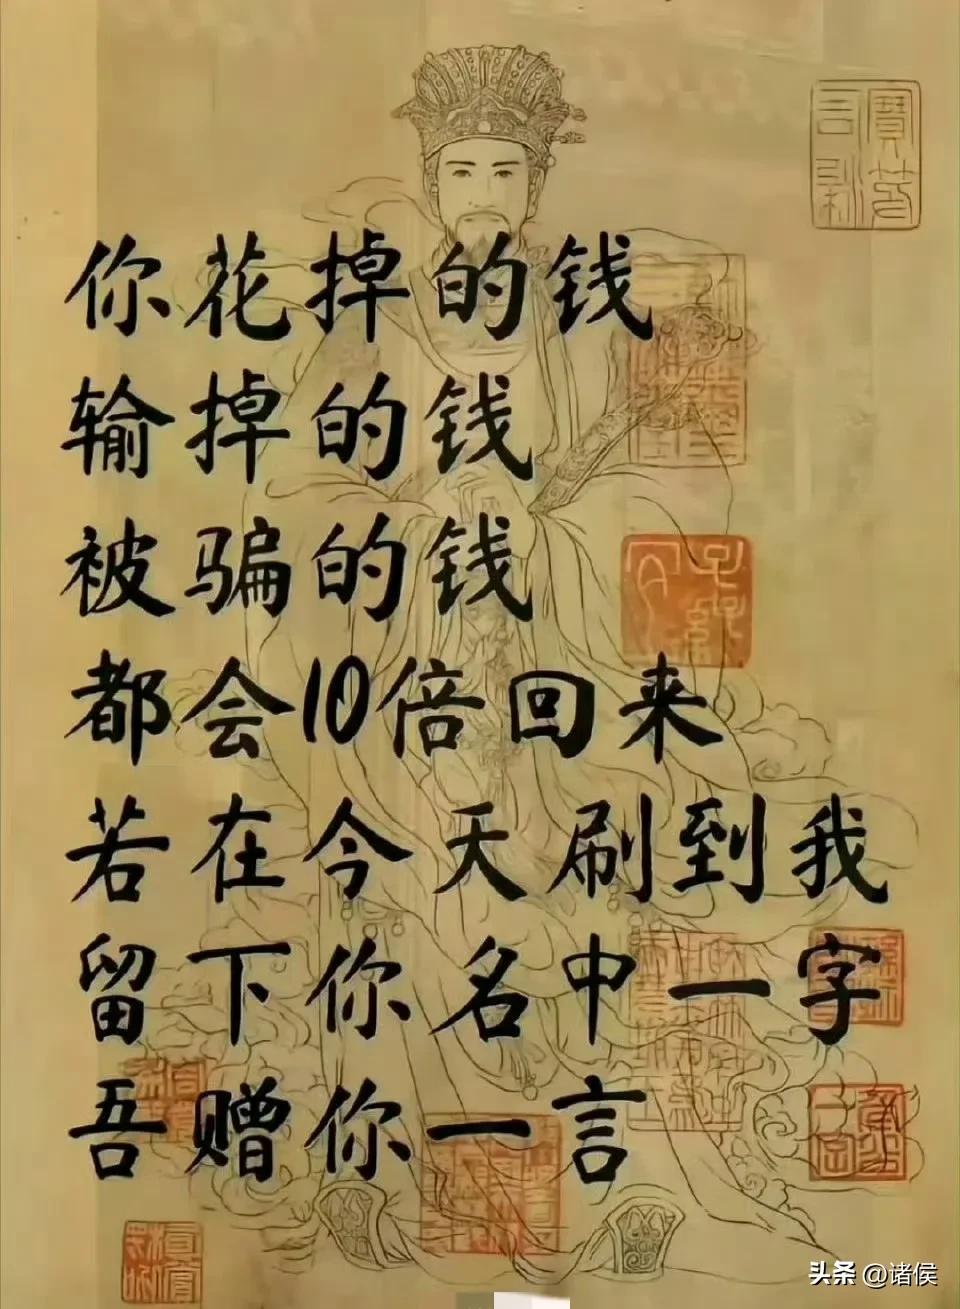 你花掉的钱
输掉的钱
被骗的钱
都会10倍回来
若在今天刷到我
留下你名中一字
吾赠你一言
头条 @诸侯